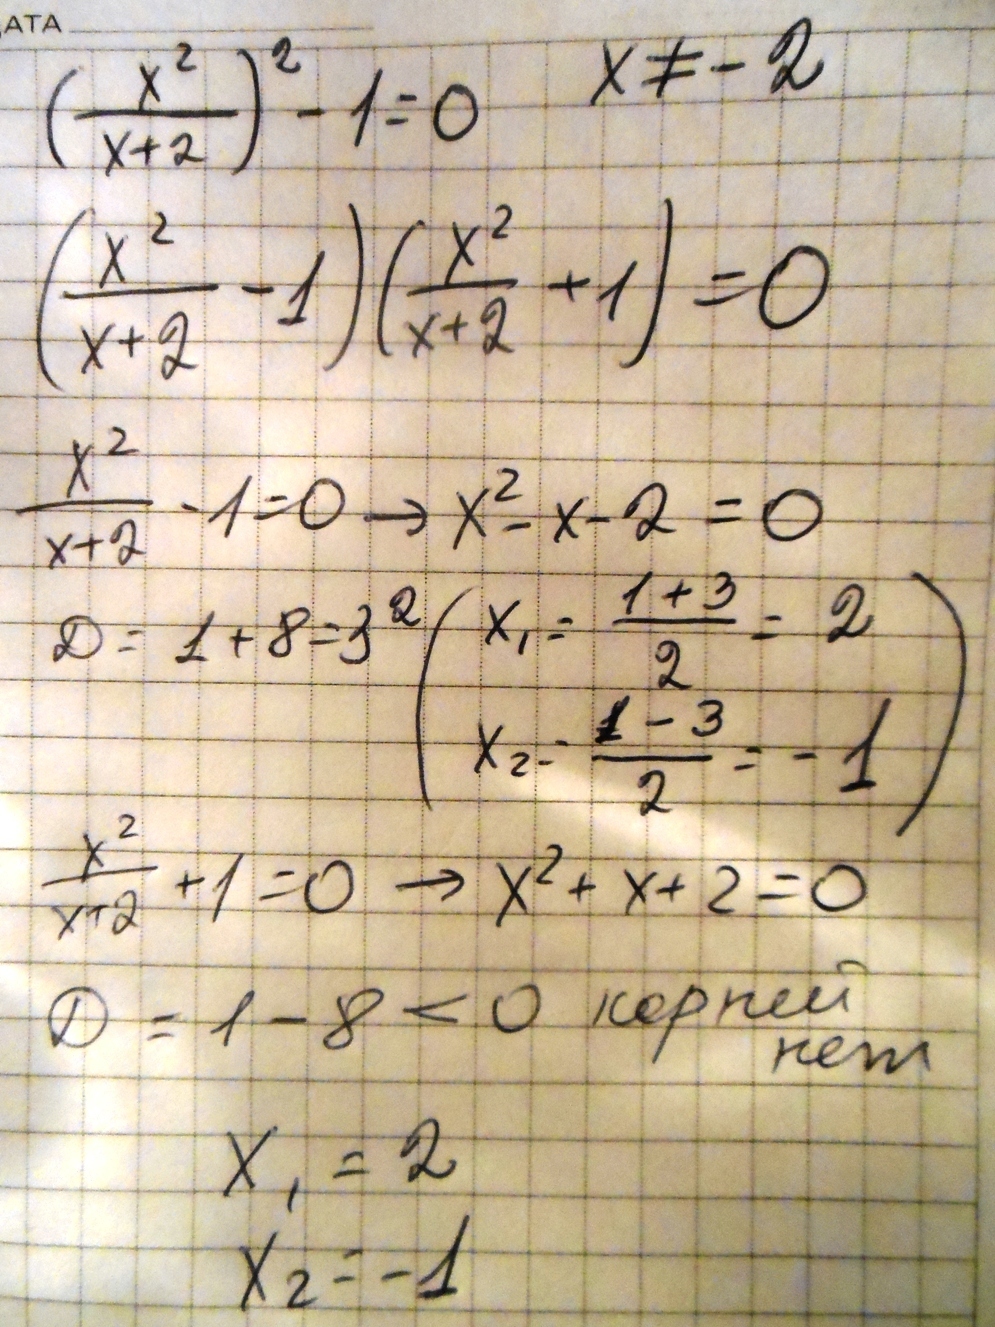 ДАТА
(x²/(x+2))² - 1 = 0    x ≠ -2
(x²/(x+2) - 1)(x²/(x+2) + 1) = 0
x²/(x+2) - 1 = 0 → x² - x - 2 = 0
D = 1 + 8 = 3² ( x₁ = (1+3)/2 = 2
x₂ = (1-3)/2 = -1 )
x²/(x+2) + 1 = 0 → x² + x + 2 = 0
D = 1 - 8 < 0 корней
нет
x₁ = 2
x₂ = -1